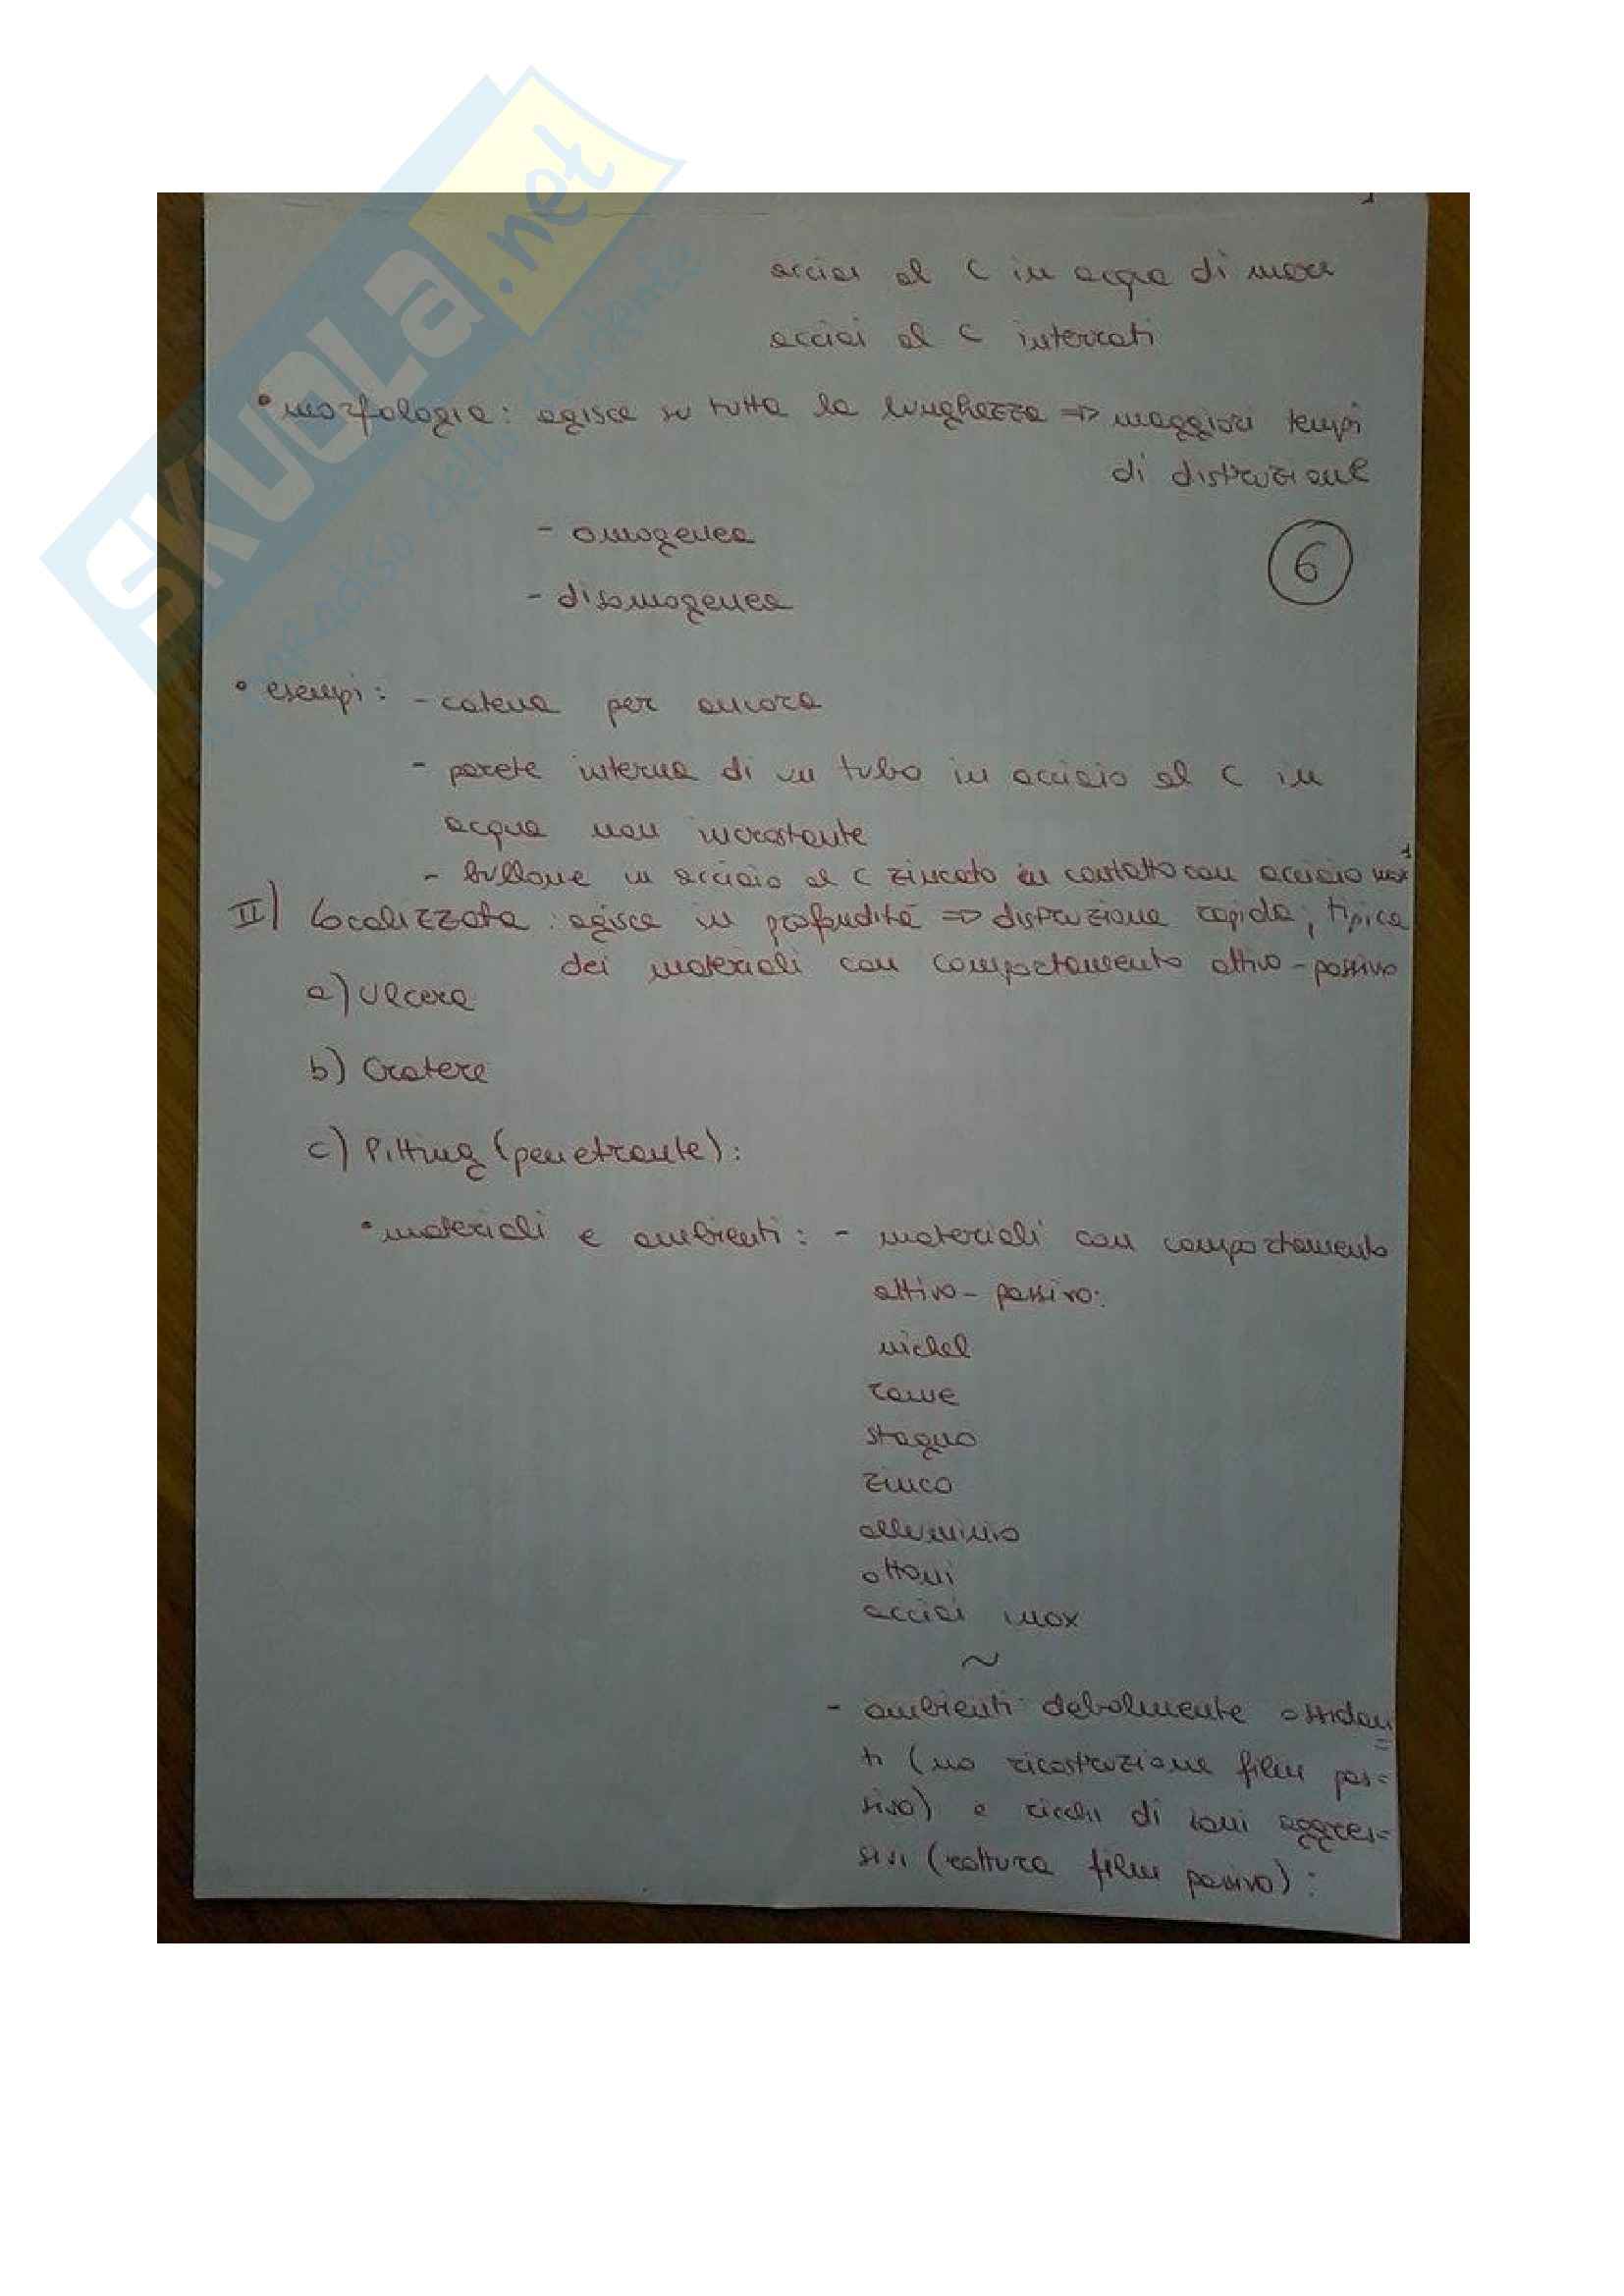 SKUOLA.net
il paradiso dello studente
acciai al C in acqua di mare
acciai al C interrati
• morfologia: agisce su tutta la lunghezza => maggiori tempi
di distruzione
- omogenea
6
- disomogenea
• esempi: - catena per ancora
- parete interna di un tubo in acciaio al C in
acqua non incrostante
- bullone in acciaio al C zincato in contatto con acciaio inox
II) Localizzata: agisce in profondità => distruzione rapida, tipica
dei materiali con comportamento attivo-passivo
a) Ulcera
b) Cratere
c) Pitting (penetrante):
• materiali e ambienti: - materiali con comportamento
attivo-passivo:
nichel
rame
stagno
zinco
alluminio
ottoni
acciai inox
~
- ambienti debolmente ossidan=
ti (no ricostruzione film pas=
sivo) e ricchi di ioni aggres=
sivi (rottura film passivo):